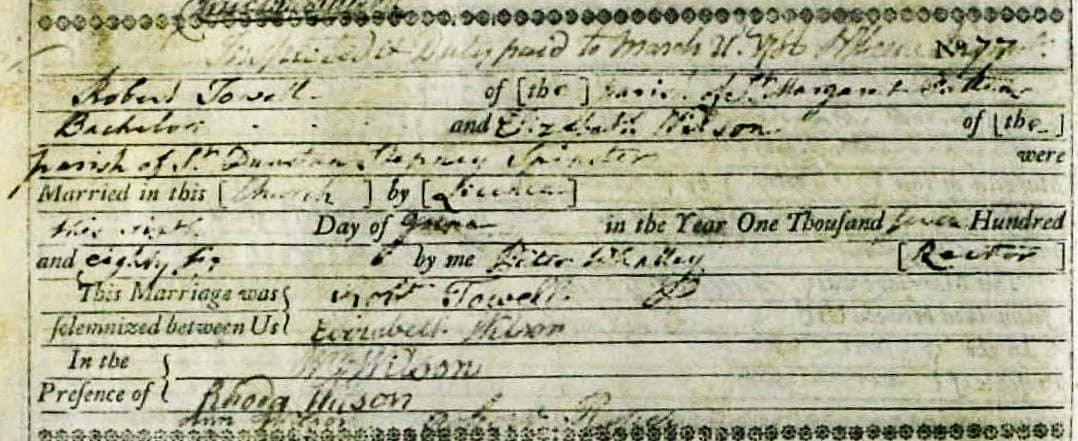 Duty paid to March No 77
Robert Towell of [the ] parish of St Margaret Pattens
Bachelor and Elizabeth Wilson of [the ]
parish of St Dunstan Stepney Spinster were
Married in this [Church ] by [Licence]
this Day of June in the Year One Thouſand ſeven Hundred
and eighty ſix 6 by me Peter Whalley [Rector ]
This Marriage was { Robt Towell
ſolemnized between Us { Elizabeth Wilson
In the { Wilson
Preſence of { Rhoda Wilson